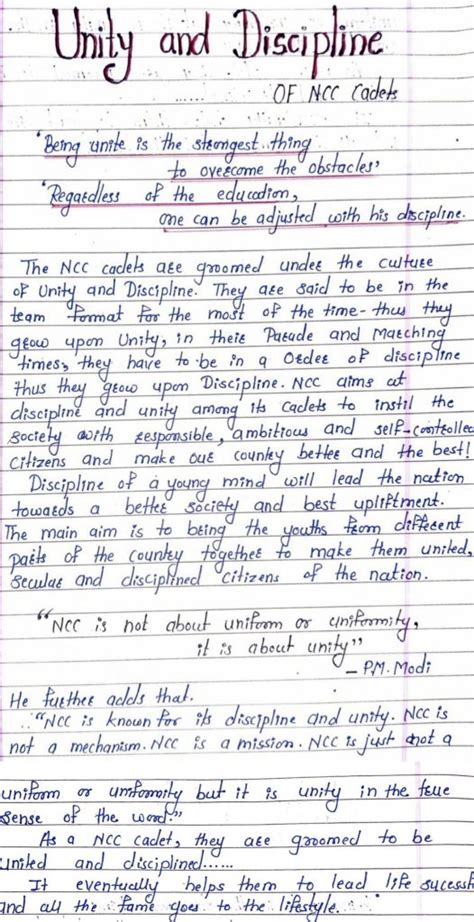 Unity and Discipline
OF NCC Cadets
'Being unite is the strongest thing
to overcome the obstacles'
'Regardless of the education,
one can be adjusted with his discipline.
The NCC cadets are groomed under the culture
of Unity and Discipline. They are said to be in the
team format for the most of the time - thus they
grow upon Unity, in their Parade and Marching
times, they have to be in a Order of discipline
thus they grow upon Discipline. NCC aims at
discipline and unity among its Cadets to instil the
society with responsible, ambitious and self-controlled
Citizens and make our country better and the best!
Discipline of a young mind will lead the nation
towards a better society and best upliftment.
The main aim is to bring the youths from different
parts of the country together to make them united,
secular and disciplined citizens of the nation.
"NCC is not about uniform or uniformity,
it is about unity"
- P.M. Modi
He further adds that.
"NCC is known for its discipline and unity. NCC is
not a mechanism. NCC is a mission. NCC is just not a
uniform or uniformity but it is unity in the true
sense of the word."
As a NCC cadet, they are groomed to be
united and disciplined......
It eventually helps them to lead life sucessful
and all the fame goes to the lifestyle.